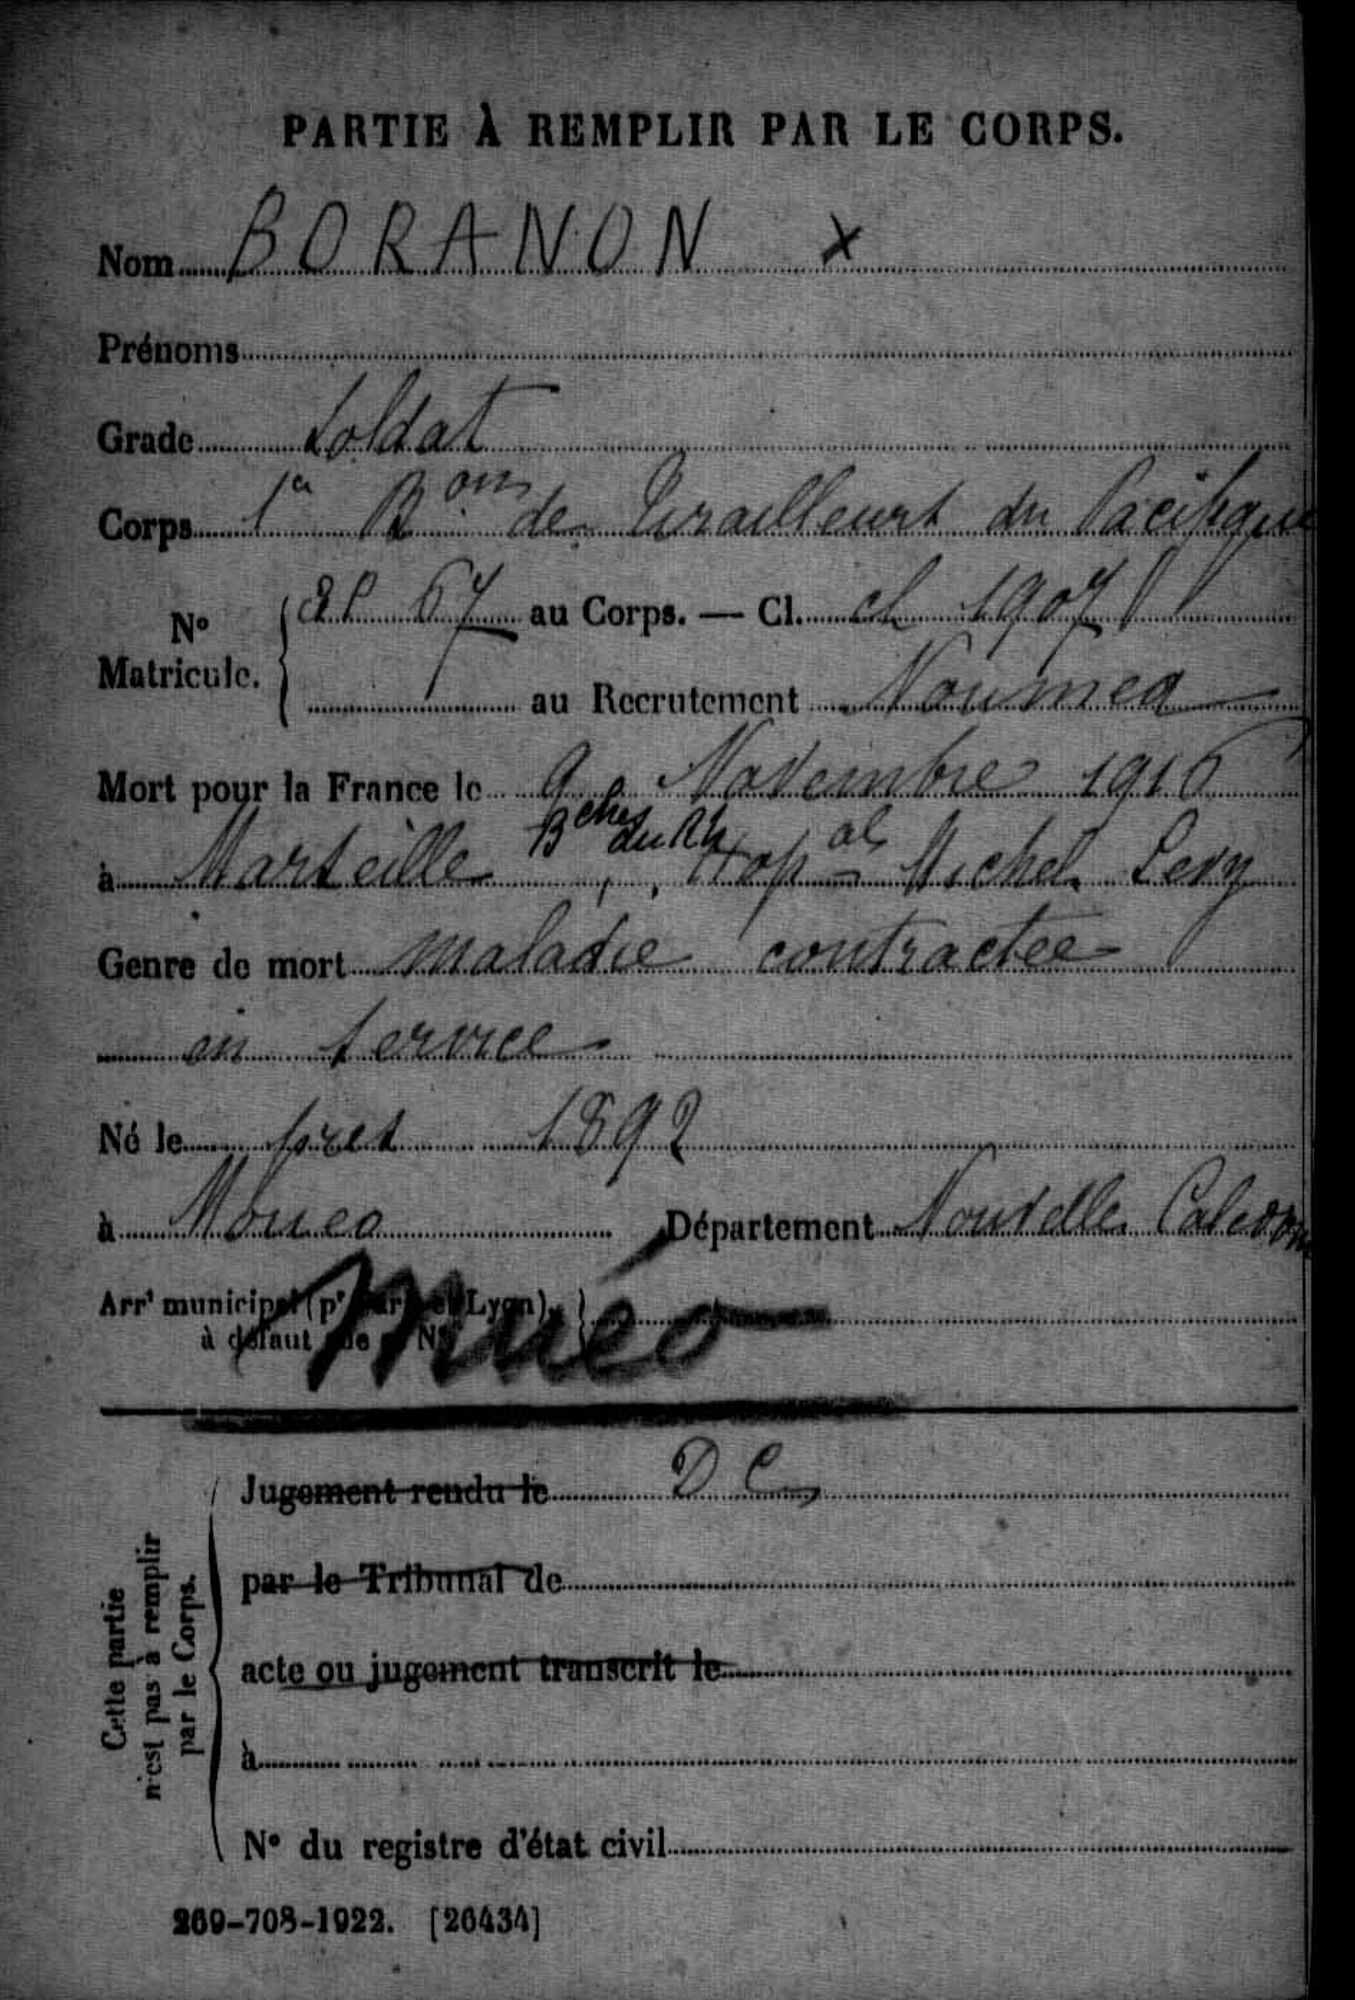 PARTIE À REMPLIR PAR LE CORPS.
Nom BORANON X
Prénoms
Grade Soldat
Corps 1er Bon de Tirailleurs du Pacifique
N° Matricule. 67 au Corps. — Cl. cl 1907
au Recrutement Nouméa
Mort pour la France le 9 Novembre 1916
à Marseille Bches du Rh Hopal Michel Levy
Genre de mort maladie contractée
en service
Né le 1892
à Moueo Département Nouvelle Caledon
Arrt municipal (pr Paris et Lyon),
à défaut rue et N°
Muéo
Cette partie
n'est pas à remplir
par le Corps.
Jugement rendu le D C
par le Tribunal de
acte ou jugement transcrit le
à
N° du registre d'état civil
269-708-1922. [26434]